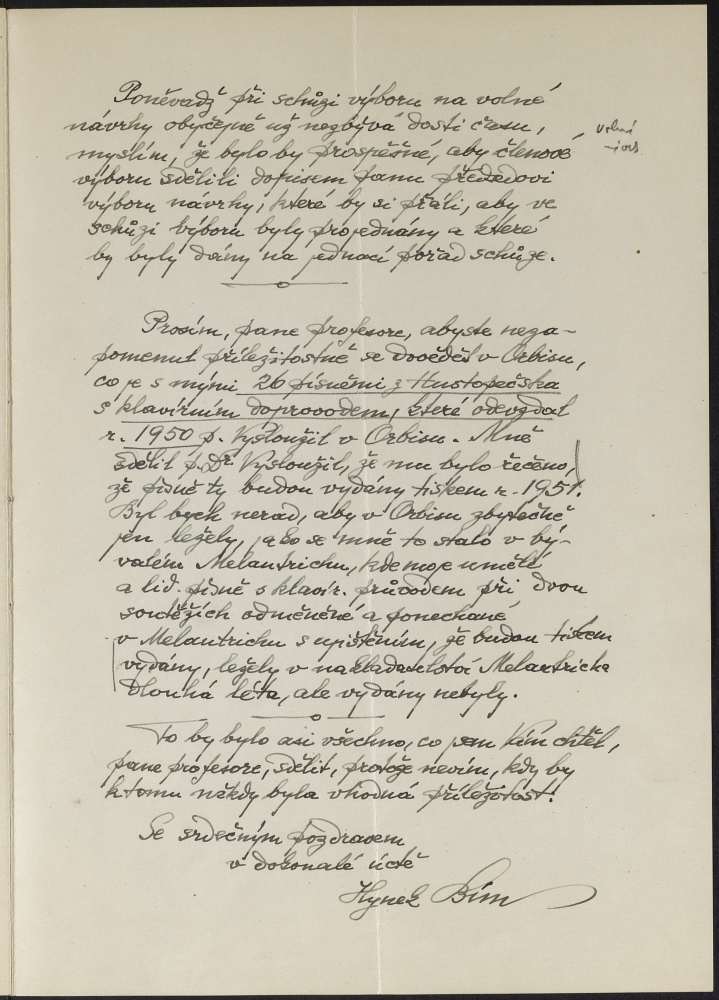 Poněvadž při schůzi výboru na volné
návrhy obyčejně už nezbývá dosti času,
myslím, že bylo by prospěšné, aby členové
výboru sdělili dopisem panu předsedovi
výboru návrhy, které by si přáli, aby ve
schůzi výboru byly projednány a které
by byly dány na jednací pořad schůze.
Prosím, pane profesore, abyste neza-
pomenul příležitostně se dověděti v Orbisu,
co je s mými 26 písněmi z Hustopečska
s klavírním doprovodem, které odevzdal
r. 1950 p. Vysloužil v Orbisu. Mně
sdělil p. Dr Vysloužil, že mu bylo řečeno,
že písně ty budou vydány tiskem r. 1951.
Byl bych nerad, aby v Orbisu zbytečně
jen ležely, jako se mně to stalo v bý-
valém Melantrichu, kde moje umělé
a lid. písně s klavír. průvodem při dvou
soutěžích odměněné a ponechané
v Melantrichu s ujištěním, že budou tiskem
vydány, ležely v nakladatelství Melantricha
dlouhá léta, ale vydány nebyly.
To by bylo asi všechno, co jsem Vám chtěl,
pane profesore, sdělit, protože nevím, kdy by
k tomu někdy byla vhodná příležitost.
Se srdečným pozdravem
v dokonalé úctě
Hynek Bím